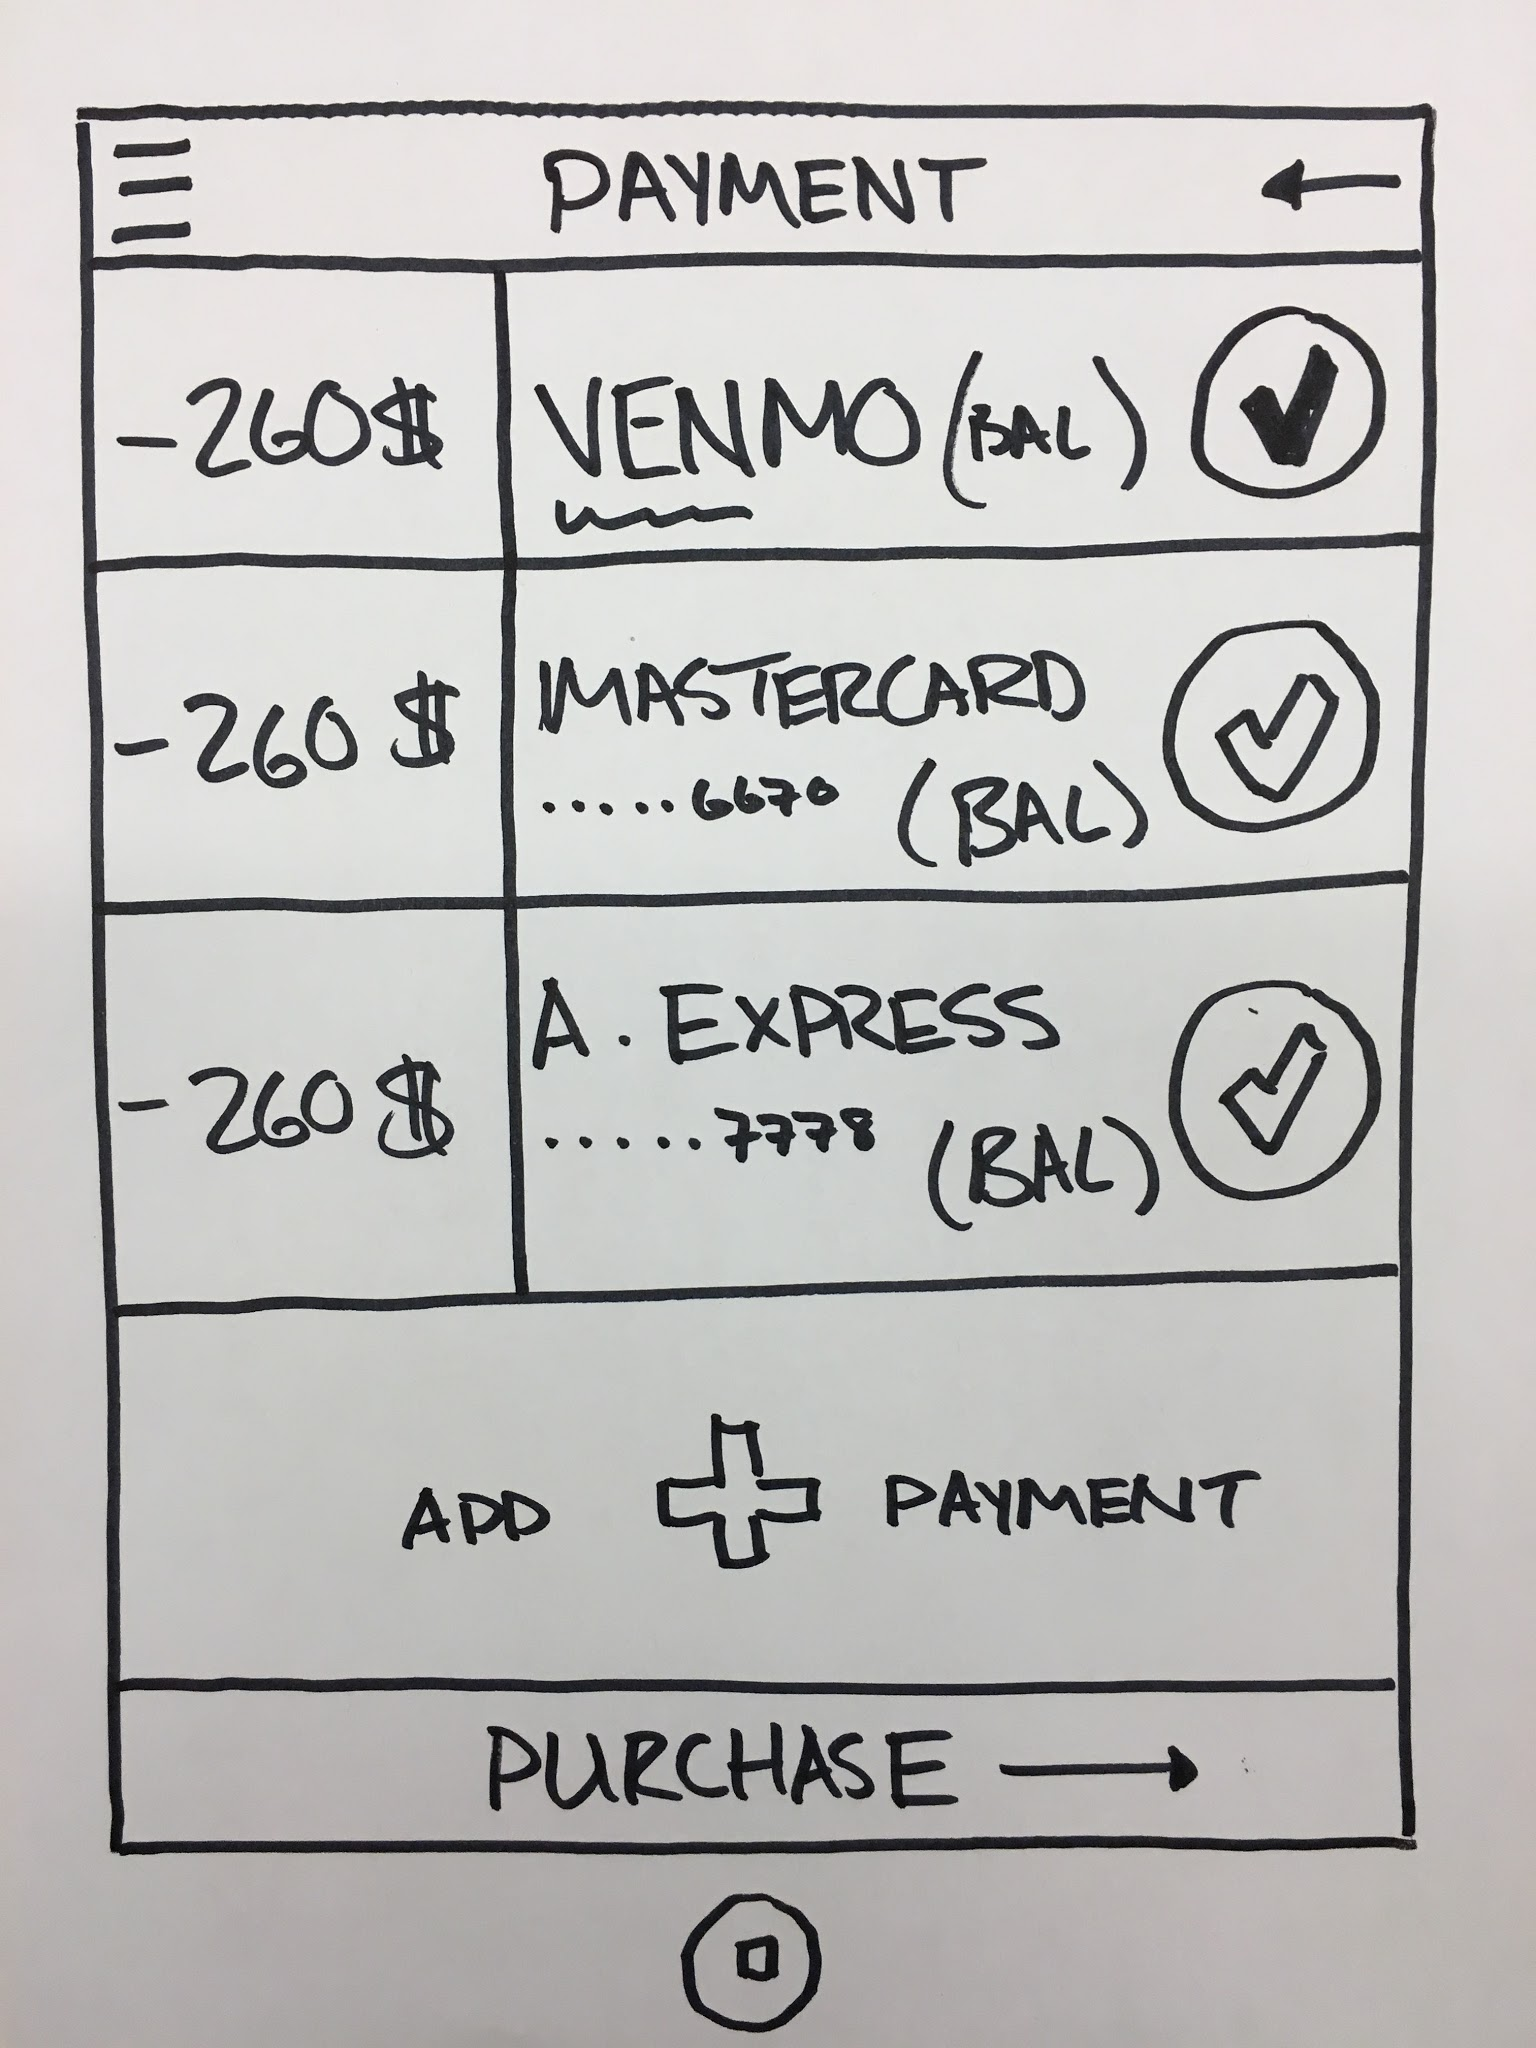 PAYMENT
-260$
VENMO (BAL)
-260 $
MASTERCARD
.....6670 (BAL)
-260 $
A. EXPRESS
.....7778 (BAL)
ADD PAYMENT
PURCHASE